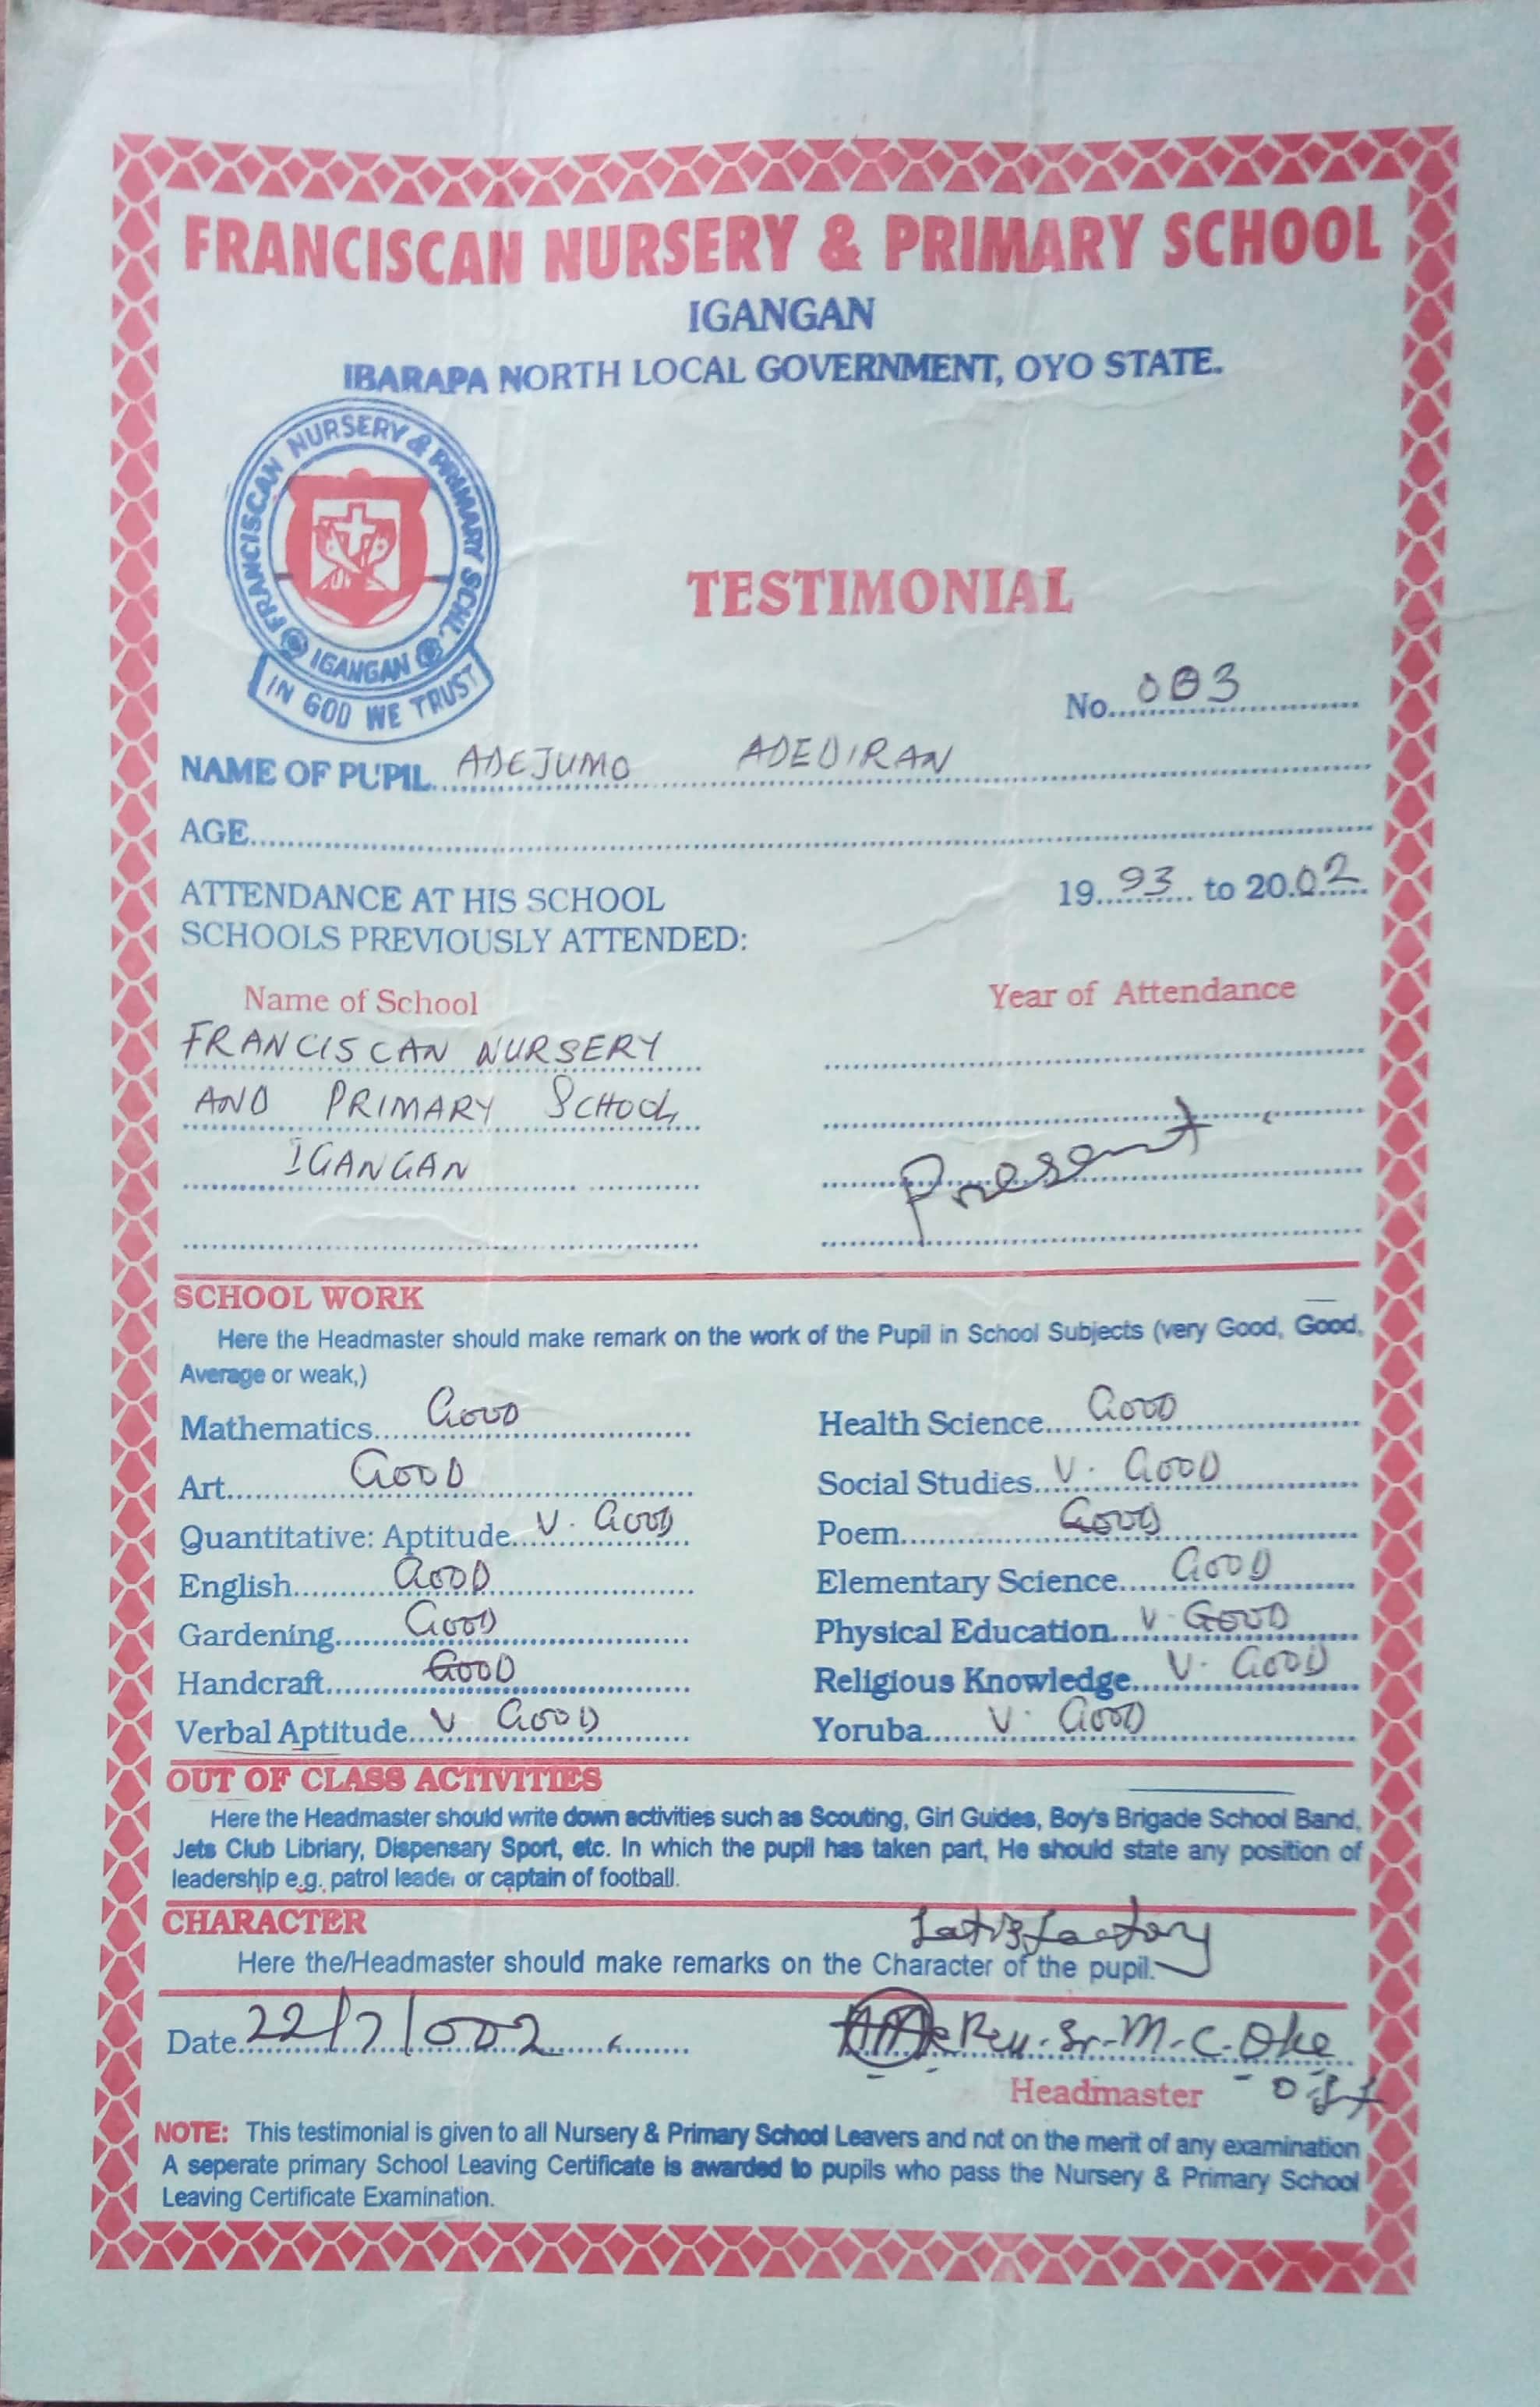 FRANCISCAN NURSERY & PRIMARY SCHOOL
IGANGAN
IBARAPA NORTH LOCAL GOVERNMENT, OYO STATE.
FRANCISCAN NURSERY & PRIMARY SCHL.
IGANGAN
IN GOD WE TRUST
TESTIMONIAL
No. 003
NAME OF PUPIL ADEJUMO ADEDIRAN
AGE
ATTENDANCE AT HIS SCHOOL 19 93 to 20.02
SCHOOLS PREVIOUSLY ATTENDED:
Name of School Year of Attendance
FRANCISCAN NURSERY
AND PRIMARY SCHOOL
IGANGAN Present
SCHOOL WORK
Here the Headmaster should make remark on the work of the Pupil in School Subjects (very Good, Good,
Average or weak,)
Mathematics GOOD Health Science GOOD
Art GOOD Social Studies V. GOOD
Quantitative: Aptitude V. GOOD Poem GOOD
English GOOD Elementary Science GOOD
Gardening GOOD Physical Education V. GOOD
Handcraft GOOD Religious Knowledge V. GOOD
Verbal Aptitude V GOOD Yoruba V. GOOD
OUT OF CLASS ACTIVITIES
Here the Headmaster should write down activities such as Scouting, Girl Guides, Boy's Brigade School Band,
Jets Club Libriary, Dispensary Sport, etc. In which the pupil has taken part, He should state any position of
leadership e.g. patrol leader or captain of football.
CHARACTER Satisfactory
Here the/Headmaster should make remarks on the Character of the pupil.
Date 22/7/002 Rev. Sr. M. C. Oke
Headmaster
NOTE: This testimonial is given to all Nursery & Primary School Leavers and not on the merit of any examination
A seperate primary School Leaving Certificate is awarded to pupils who pass the Nursery & Primary School
Leaving Certificate Examination.